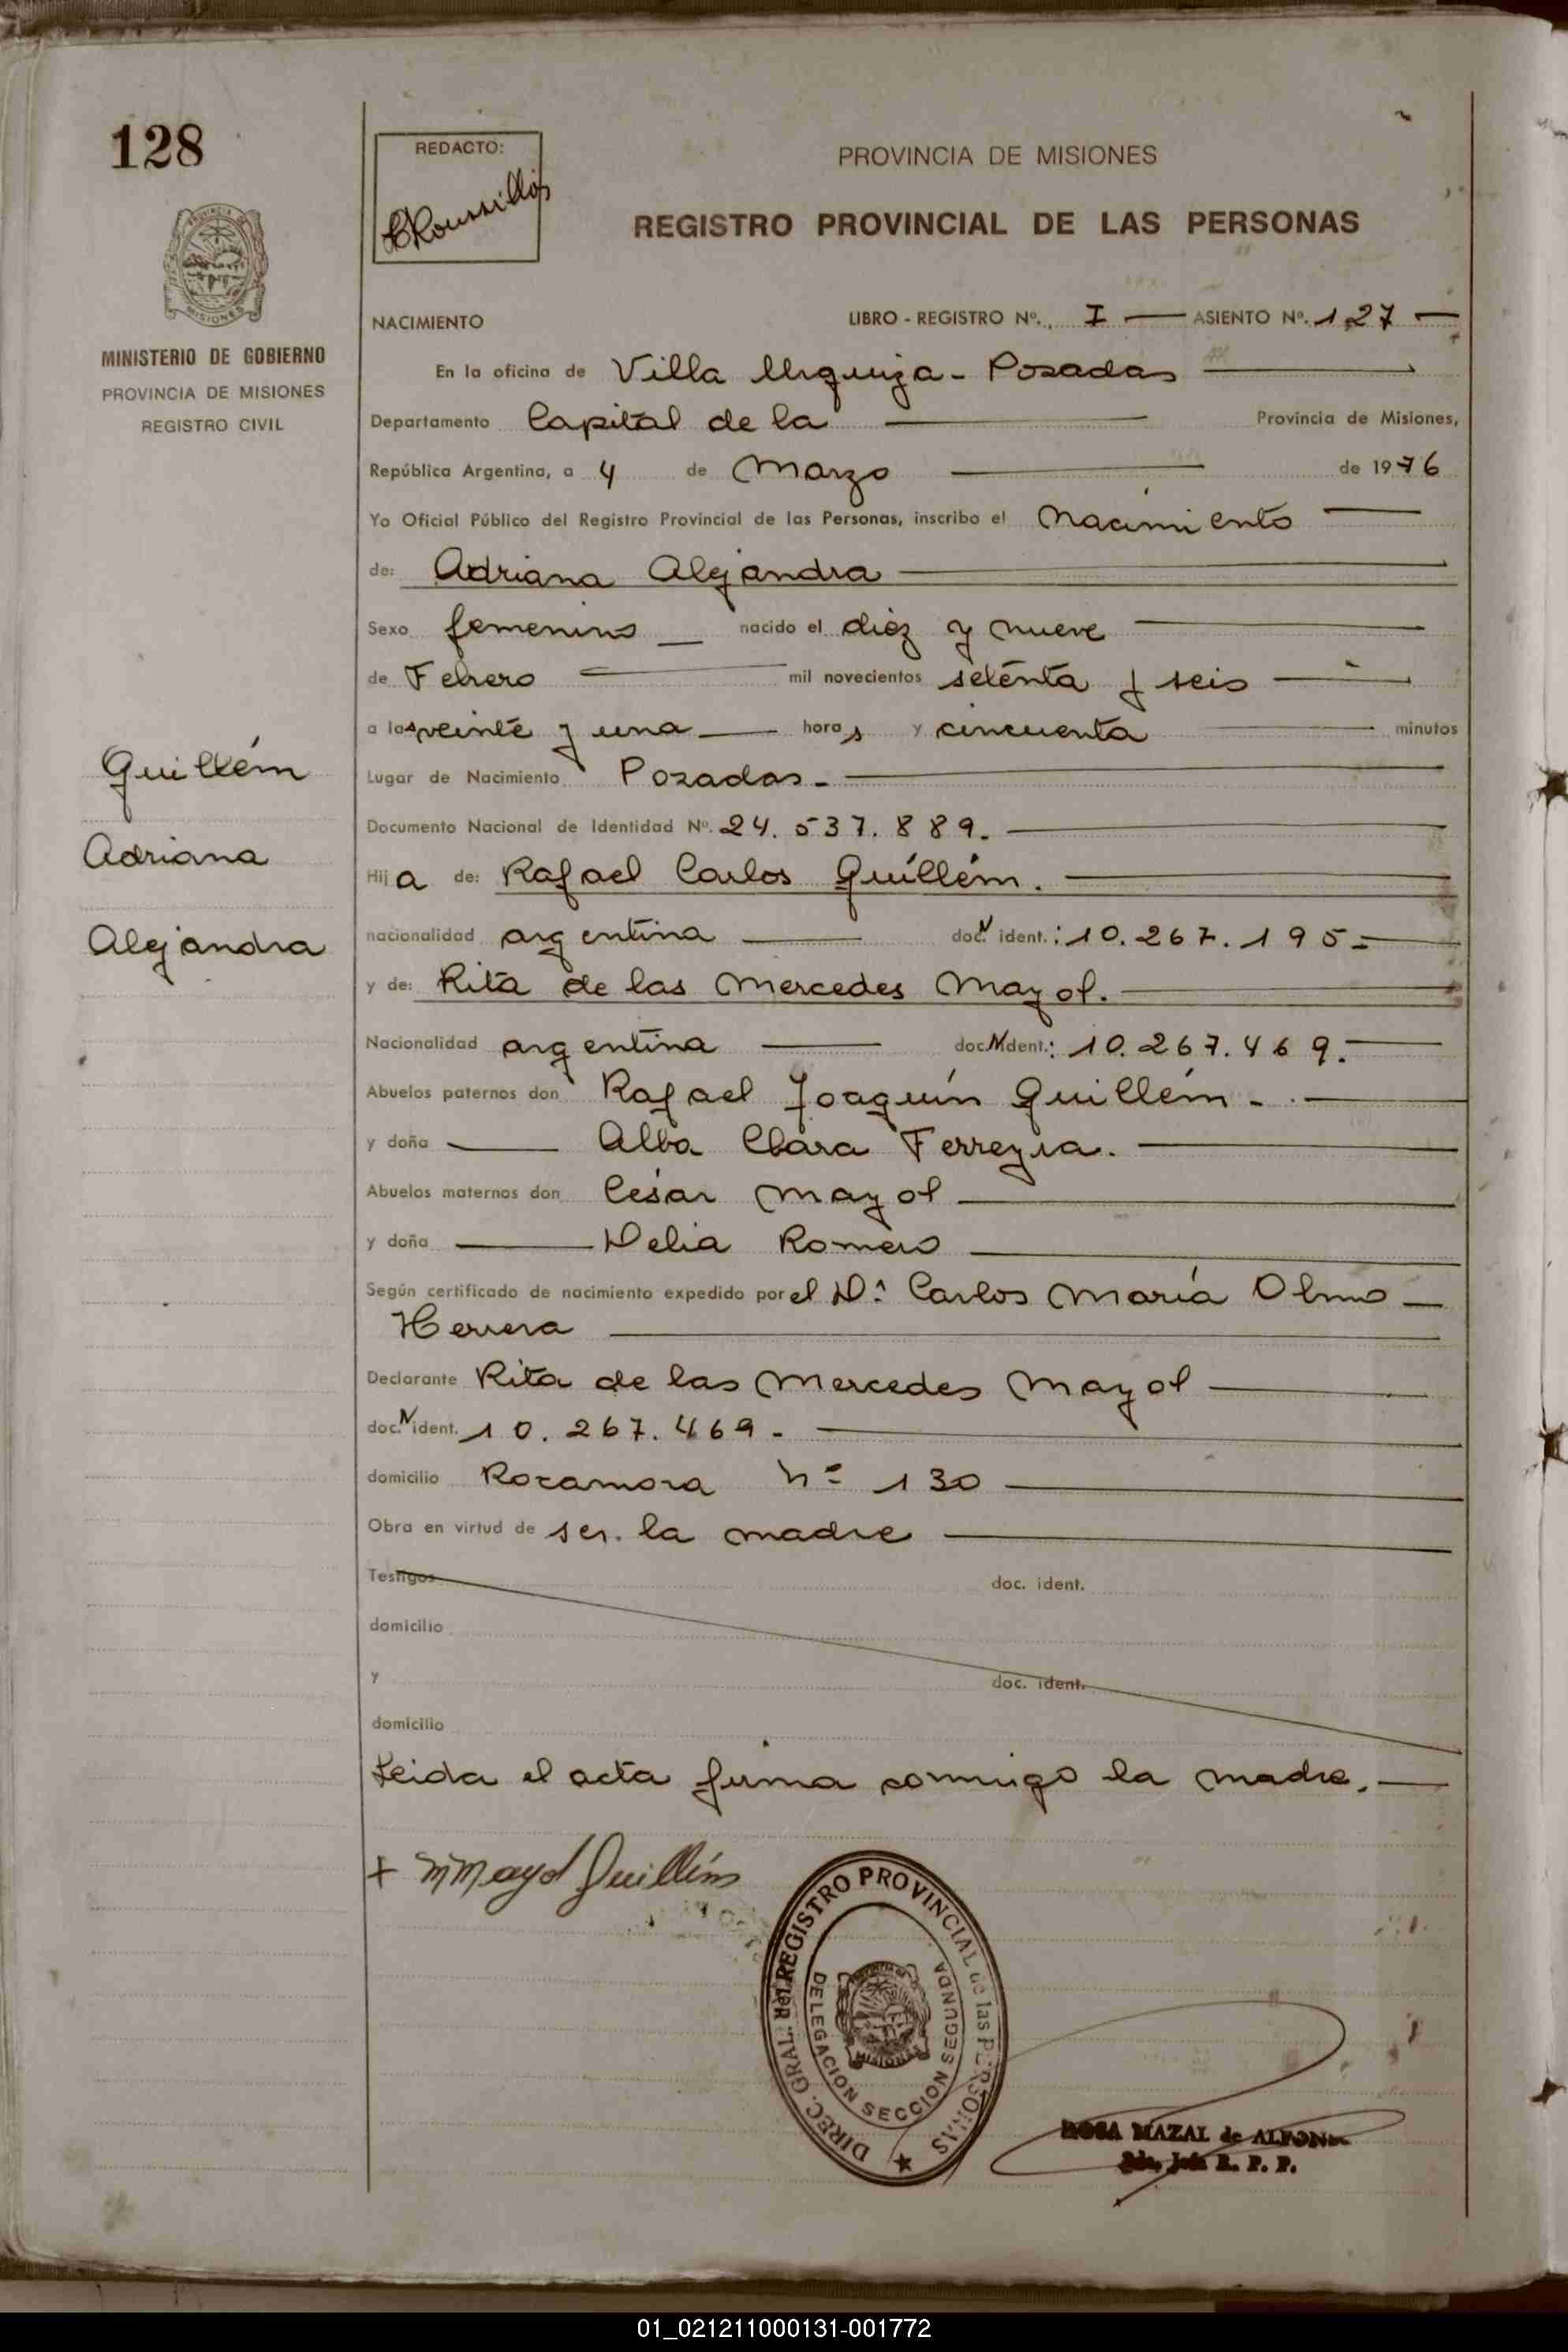 128
REDACTO:
PROVINCIA DE MISIONES
REGISTRO PROVINCIAL DE LAS PERSONAS
MINISTERIO DE GOBIERNO
PROVINCIA DE MISIONES
REGISTRO CIVIL
NACIMIENTO LIBRO - REGISTRO Nº. I — ASIENTO Nº. 127 —
En la oficina de Villa Urquiza - Posadas
Departamento Capital de la Provincia de Misiones,
República Argentina, a 4 de Marzo de 1976
Yo Oficial Público del Registro Provincial de las Personas, inscribo el Nacimiento
de: Adriana Alejandra
Sexo femenino nacido el diez y nueve
de Febrero mil novecientos setenta y seis
a las veinte y una horas y cincuenta minutos
Lugar de Nacimiento Posadas.
Documento Nacional de Identidad Nº. 24.537.889.
Guillém
Adriana
Alejandra
Hija de: Rafael Carlos Guillém.
nacionalidad argentina doc. N ident.: 10.267.195
y de: Rita de las Mercedes Mayol.
Nacionalidad argentina doc. N ident.: 10.267.469.
Abuelos paternos don Rafael Joaquín Guillém.
y doña Alba Clara Ferreyra.
Abuelos maternos don César Mayol
y doña Delia Romero
Según certificado de nacimiento expedido por el Dr. Carlos María Olmo
Herrera
Declarante Rita de las Mercedes Mayol
doc. N ident. 10.267.469.
domicilio Rocamora nº 130
Obra en virtud de ser la madre
Testigos doc. ident.
domicilio
y doc. ident.
domicilio
Leida el acta firma conmigo la madre.
+ M Mayol Guillém
DIREC. GRAL. del REGISTRO PROVINCIAL de las PERSONAS
DELEGACION SECCION SEGUNDA
MISIONES
ROSA MAZAL de ALFONSO
R. P. P.
01_021211000131-001772